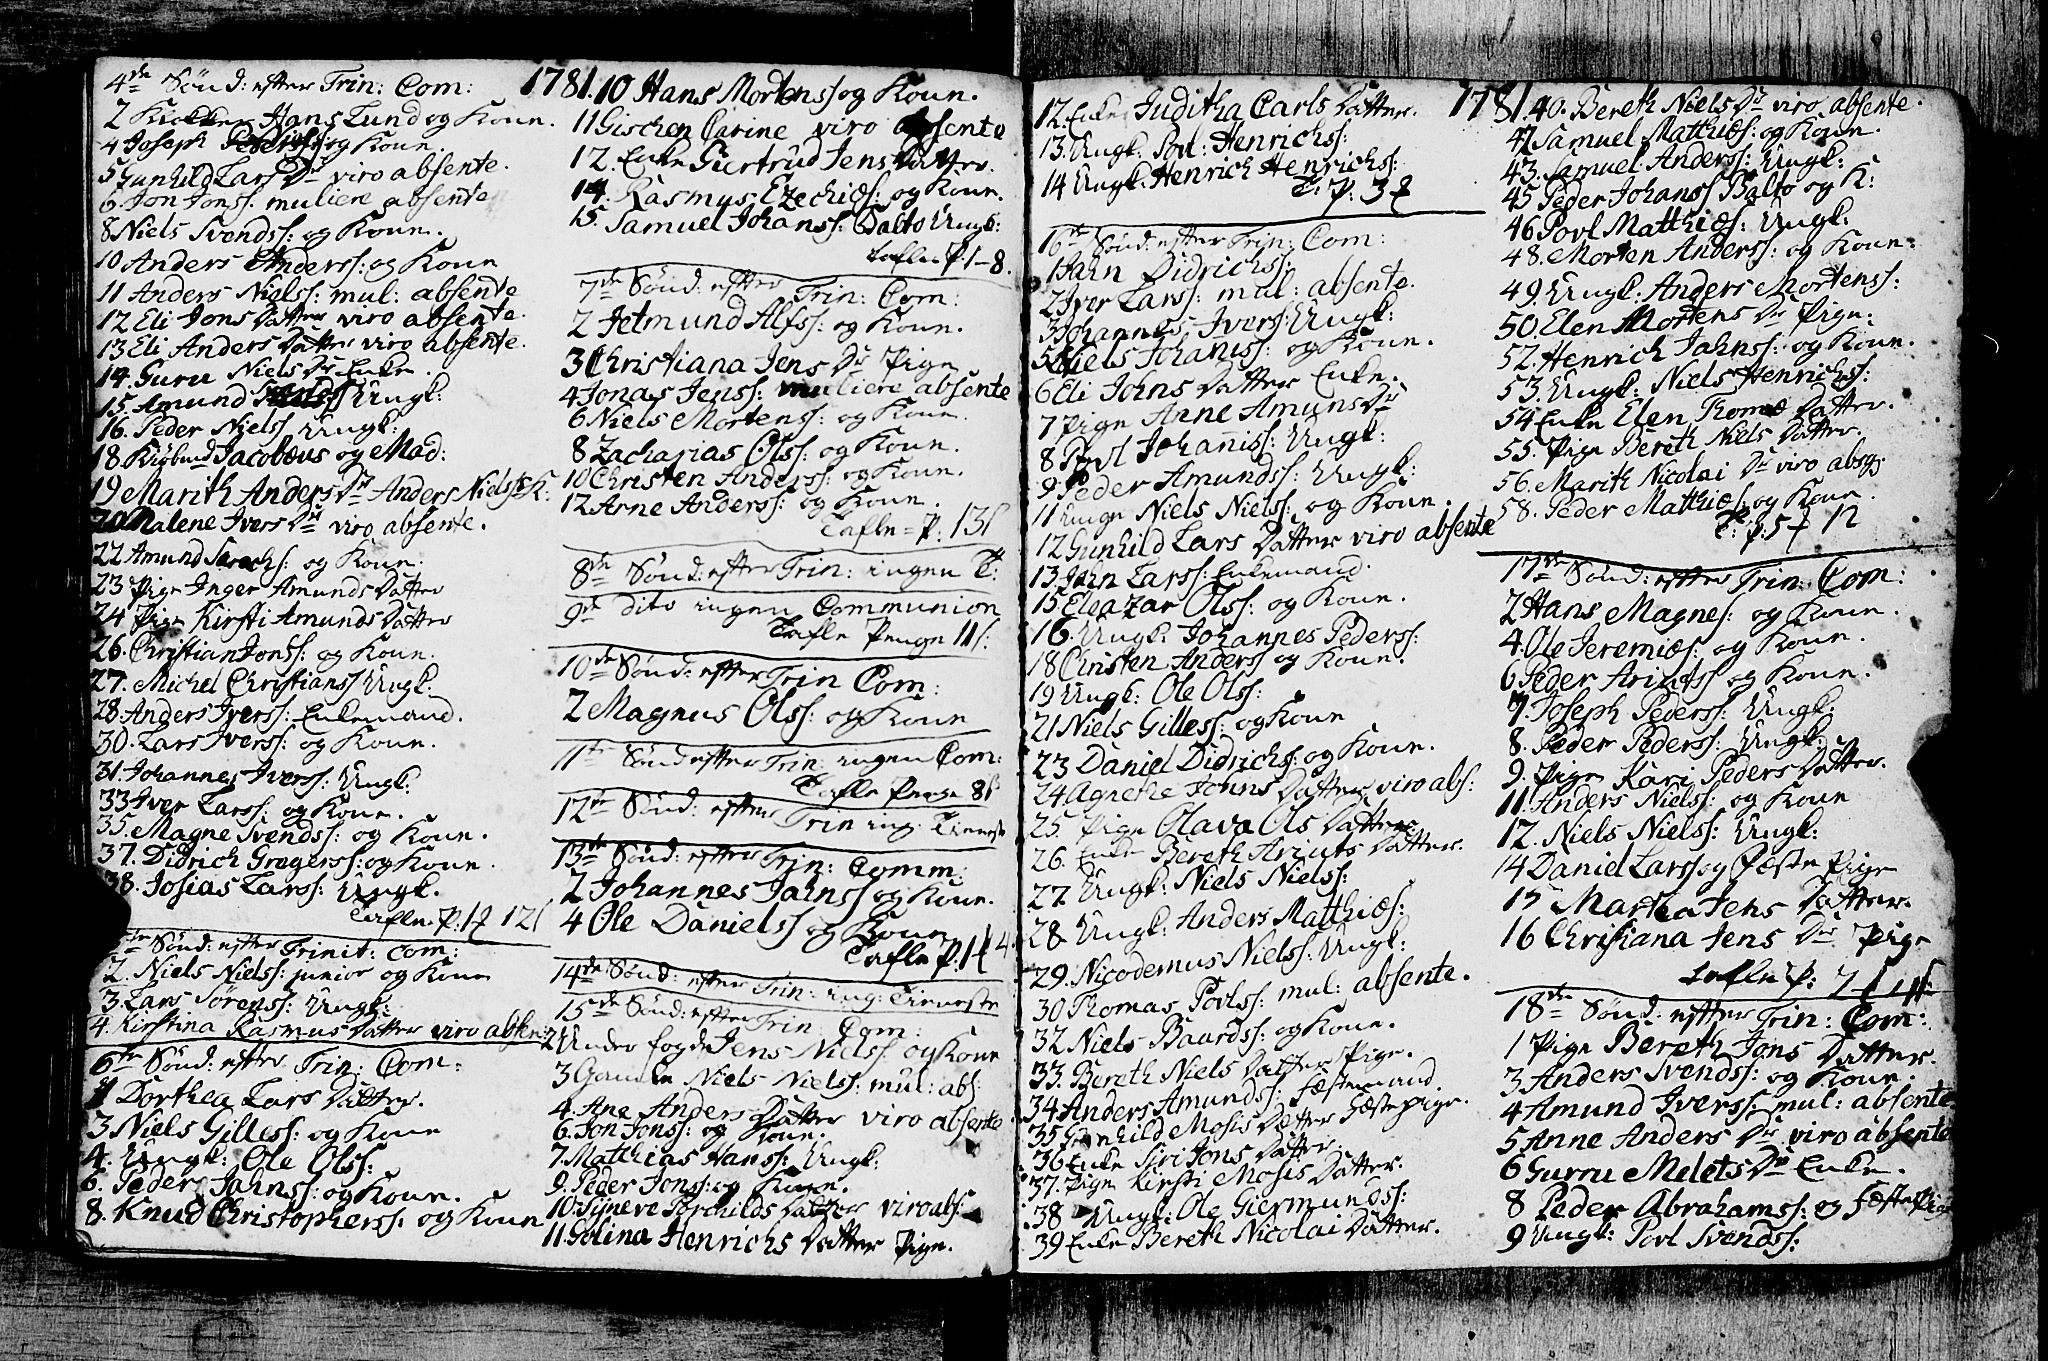 4de Sønd: efter Trin: Com:
2 Klokker Hans Lund og Kone.
4 Joseph Peders: og Kone.
5 Gunhild Lars Dr viro absente.
6. Jon Jonss: muliere absente
8 Niels Svendss: og Kone.
10 Anders Anderss: og Kone
11 Anders Nielss: mul: absente
12 Eli Jons Datter viro absente.
13 Eli Anders Datter viro absente.
14. Guru Niels Dr Enke.
15. Amund Ungk:
16. Peder Nielss Ungk:
18. Kiøbmd Jacobæus og Mad:
19 Marith Anders Dr Anders Nielss K:
20 Malene Ivers Dr viro absente.
22 Amund og Kone.
23 Pige Inger Amunds Datter
24 Pige Kirsti Amunds Datter
26. Christian Jonss: og Kone.
27. Michel Christianss Ungk:
28 Anders Iverss: Enkemand.
30. Lars Iverss: og Kone.
31. Johannes Iverss: Ungk:
33 Iver Larss: og Kone.
35. Magne Svendss: og Kone.
37. Didrich Gregerss: og Kone.
38. Josias Larss: Ungk.
Tafle. P. 12 s
Sønd: efter Trinit: Com:
2. Niels Nielss: junior og Kone
3. Lars Sørenss: Ungk:
4. Kirstina Rasmus Datter viro absen:
6te Sønd: efter Trin: Com:
1 Dorthea Lars Datter.
3 Niels Gilless: og Kone
4. Ungk: Ole Olss:
6. Peder Jahnss: og Kone.
8. Knud Christopherss: og Kone
1781.
10 Hans Mortenss og Kone.
11 Gischen Carine viro absente
12. Enke Giertrud Jens Datter.
14. Rasmus Ezechiæs: og Kone.
15. Samuel Johanss: Balto Ungk:
Tafle P. 1-8.
7de Sønd: efter Trin: Com:
2 Jetmund Alfss: og Kone.
3 Christiana Jens Dr Pige
4 Jonas Jenss: muliere absente
6 Niels Mortenss: og Kone.
8 Zacharias Olss: og Kone.
10 Christen Anderss: og Kone.
12 Arne Anderss: og Kone.
Tafle = P. 13 s
8de Sønd: efter Trin: ingen T:
9de dito ingen Communion
Tafle Penge 11 s:
10de Sønd: efter Trin Com:
2 Magnus Olss: og Kone
11te Sønd efter Trin: ingen Com:
Tafle Penge 8 s
12te Sønd: efter Trin ing: Tieneste
13de Sønd: efter Trin: Comm:
2 Johannes Jahnss og Kone.
4 Ole Danielss og Kone
Tafle P. 1 4.
14de Sønd: efter Trin: ing: Tieneste
15de Sønd: efter Trin: Com:
2 Under fogde Jens Nielss: og Kone
3 Gamle Niels Nielss: mul: abs:
4. Ane Anders Datter viro absente
6. Jon Jonss: og Kone.
7. Matthias Hanss: Ungk:
9. Peder Jonss: og Kone.
10. Signeve Torchilds Datter viro abs:
11. Golina Henrichs Datter Pige.
12. Enke Juditha Carls Datter.
13. Ungk. Povl: Henrichs:
14 Ungk. Henrich Henrichs:
T: P: 3
16de Sønd: efter Trin: Com:
1 Jahn Didrichs:
2 Iver Larss: mul: absente.
3 Johannes Iverss: Ungk:
5 Niels Johaniss: og Kone.
6 Eli Johns Datter Enke.
7 Pige Anne Amuns Dr
8 Povl Johaniss: Ungk:
9 Peder Amundss: Ungk:
11 Unge Niels Nielss: og Kone.
12 Gunhild Lars Datter viro absente
13 Jahn Larss: Enkemand.
15 Eleazar Olss: og Kone.
16. Ungk: Johannes Pederss:
18 Christen Anderss og Kone.
19 Ungk: Ole Olss:
21 Niels Gilless: og Kone
23 Daniel Didrichs: og Kone.
24 Agnethe Johns Datter viro abs:
25. Pige Olava Ols Datter
26. Enke Bereth Arints Datter.
27 Ungk: Niels Nielss:
28 Ungk: Anders Matthiæs:
29. Nicodemus Nielss: Ungk:
30 Thomas Povlss: mul: absente.
32 Niels Baardss: og Kone.
33. Bereth Niels Datter Pige.
34 Anders Amundss: Fæstemand.
35 Gunhild Mosis Dætter Fæstepige.
36 Enke Siri Jons Datter
37. Pige Kirsti Mosis Datter.
38 Ungk: Ole Giermundss:
39 Enke Bereth Nicolai Datter.
1781
40. Bereth Niels Dr viro absente.
42 Samuel Matthiæs: og Kone.
43. Samuel Anderss: Ungk:
45 Peder Johanss Balto og K:
46 Povl Matthiæs: Ungk:
48. Morten Anderss: og Kone:
49. Ungk: Anders Mortenss:
50. Elen Mortens Dr Pige:
52. Henrich Jahnss: og Kone.
53. Ungk: Niels Henrichs:
54 Enke Elen Thomæ Datter.
55. Pige Bereth Niels Datter.
56. Marith Nicolai Dr viro abs:
58. Peder Matthiæs: og Kone.
T: P: 5 12
17de Sønd: efter Trin: Com:
2 Hans Magnes: og Kone.
4. Ole Jeremiæs: og Kone.
6 Peder Arintss og Kone.
7. Joseph Pederss: Ungk:
8. Peder Pederss: Ungk:
9. Pige Kari Peders Datter.
11. Anders Nielss: og Kone
12. Niels Nielss: Ungk:
14 Daniel Larss og Fæste Pige
15 Martha Jens Datter.
16 Christiana Jens Dr Pige
Tafle P:
18de Sønd: efter Trin: Com:
1 Pige Bereth Jons Datter.
3 Anders Svendss: og Kone.
4 Amund Iverss: mul: absente
5 Anne Anders Dr viro absente
6 Gurru Melets Dr Enke.
8 Peder Abrahamss: og Fæste Pige
9 Ungk: Povl Svendss: